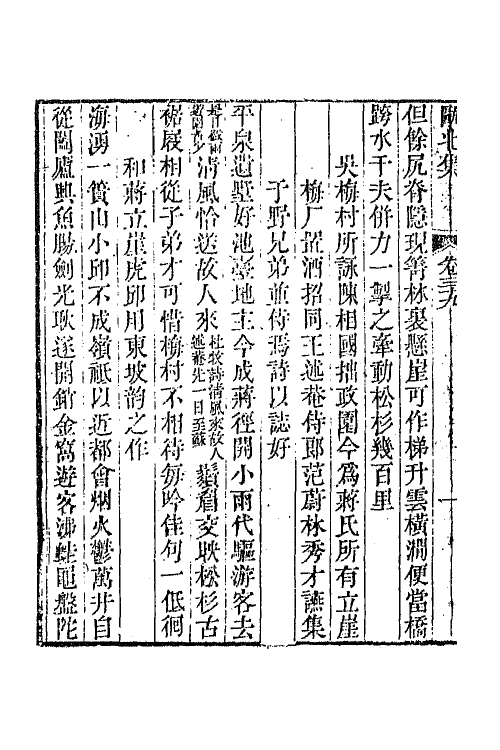 甌北集 卷三十九 一
但餘尻脊隱現箐林裏懸崖可作梯升雲橫澗便當橋
跨水千夫併力一掣之牽動松杉幾百里
吳梅村所詠陳相國拙政園今爲蔣氏所有立崖
梅厂置酒招同王述菴侍郎范蔚林秀才讌集
于野兄弟並侍焉詩以誌好
平泉遺墅好池臺地主今成蔣徑開小雨代驅游客去
是日微雨遊園者少清風恰送故人來杜牧詩清風來故人述菴先一日至蘇鬚眉交映松杉古
裾屐相從子弟才可惜梅村不相待每吟佳句一低徊
和蔣立崖虎邱用東坡韵之作
海湧一簣山小邱不成嶺祗以近都會烟火鬱萬井自
從闔廬興魚腸劍光耿遂開銷金窩遊客沸蛙黽盤陀